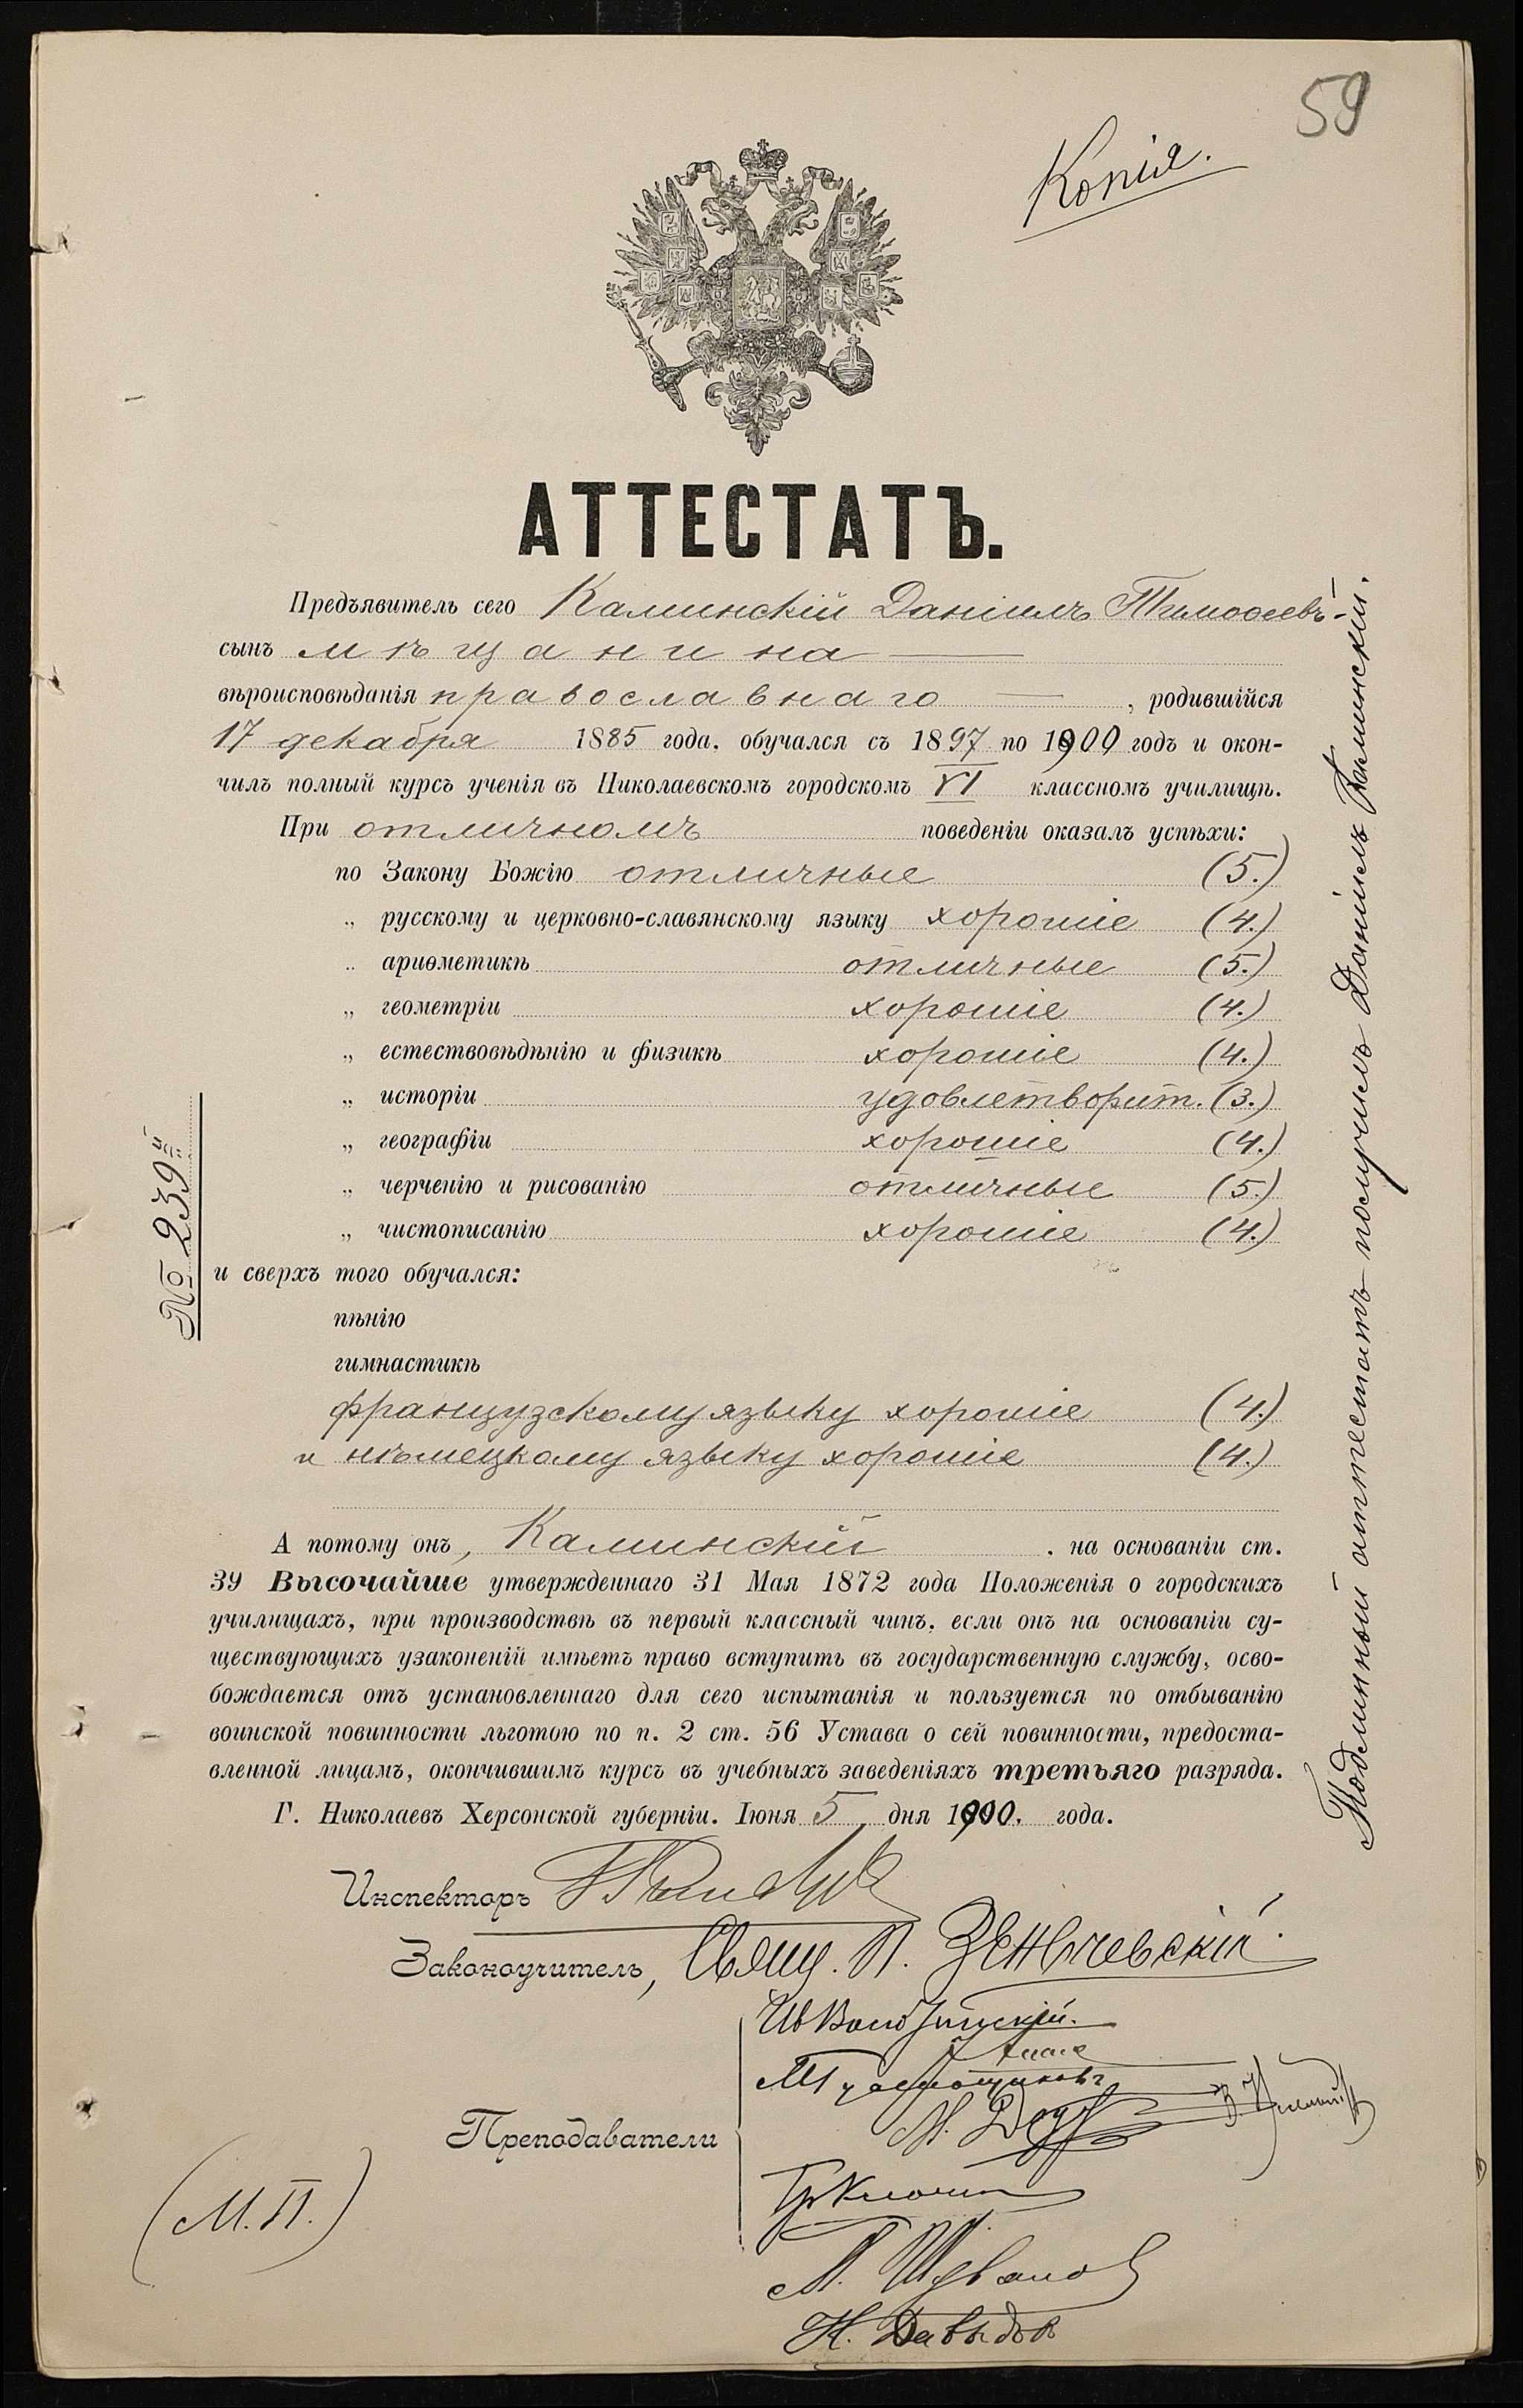 59
Копія.
АТТЕСТАТЪ.
Предъявитель сего Каминскій Даніилъ Тимоѳеевъ-
сынъ мѣщанина
вѣроисповѣданія православнаго, родившійся
17 декабря 1885 года, обучался съ 1897 по 1900 годъ и окон-
чилъ полный курсъ ученія въ Николаевскомъ городскомъ VI классномъ училищѣ.
При отличномъ поведеніи оказалъ успѣхи:
по Закону Божію отличные (5.)
„ русскому и церковно-славянскому языку хорошіе (4.)
„ ариѳметикѣ отличные (5.)
„ геометріи хорошіе (4.)
„ естествовѣдѣнію и физикѣ хорошіе (4.)
„ исторіи удовлетворит. (3.)
„ географіи хорошіе (4.)
„ черченію и рисованію отличные (5.)
„ чистописанію хорошіе (4.)
и сверхъ того обучался:
пѣнію
гимнастикѣ
французскому языку хорошіе (4.)
и нѣмецкому языку хорошіе (4.)
А потому онъ, Каминскій, на основаніи ст.
39 Высочайше утвержденнаго 31 Мая 1872 года Положенія о городскихъ
училищахъ, при производствѣ въ первый классный чинъ, если онъ на основаніи су-
ществующихъ узаконеній имѣетъ право вступить въ государственную службу, осво-
бождается отъ установленнаго для сего испытанія и пользуется по отбыванію
воинской повинности льготою по п. 2 ст. 56 Устава о сей повинности, предоста-
вленной лицамъ, окончившимъ курсъ въ учебныхъ заведеніяхъ третьяго разряда.
Г. Николаевъ Херсонской губерніи. Іюня 5 дня 1900. года.
Инспекторъ
Законоучитель, Свящ. П. Зеньчевскій.
Преподаватели
Н. Давыдовъ
(М.П.)
№ 239й
Подлинный аттестатъ получилъ Даніилъ Каминскій.